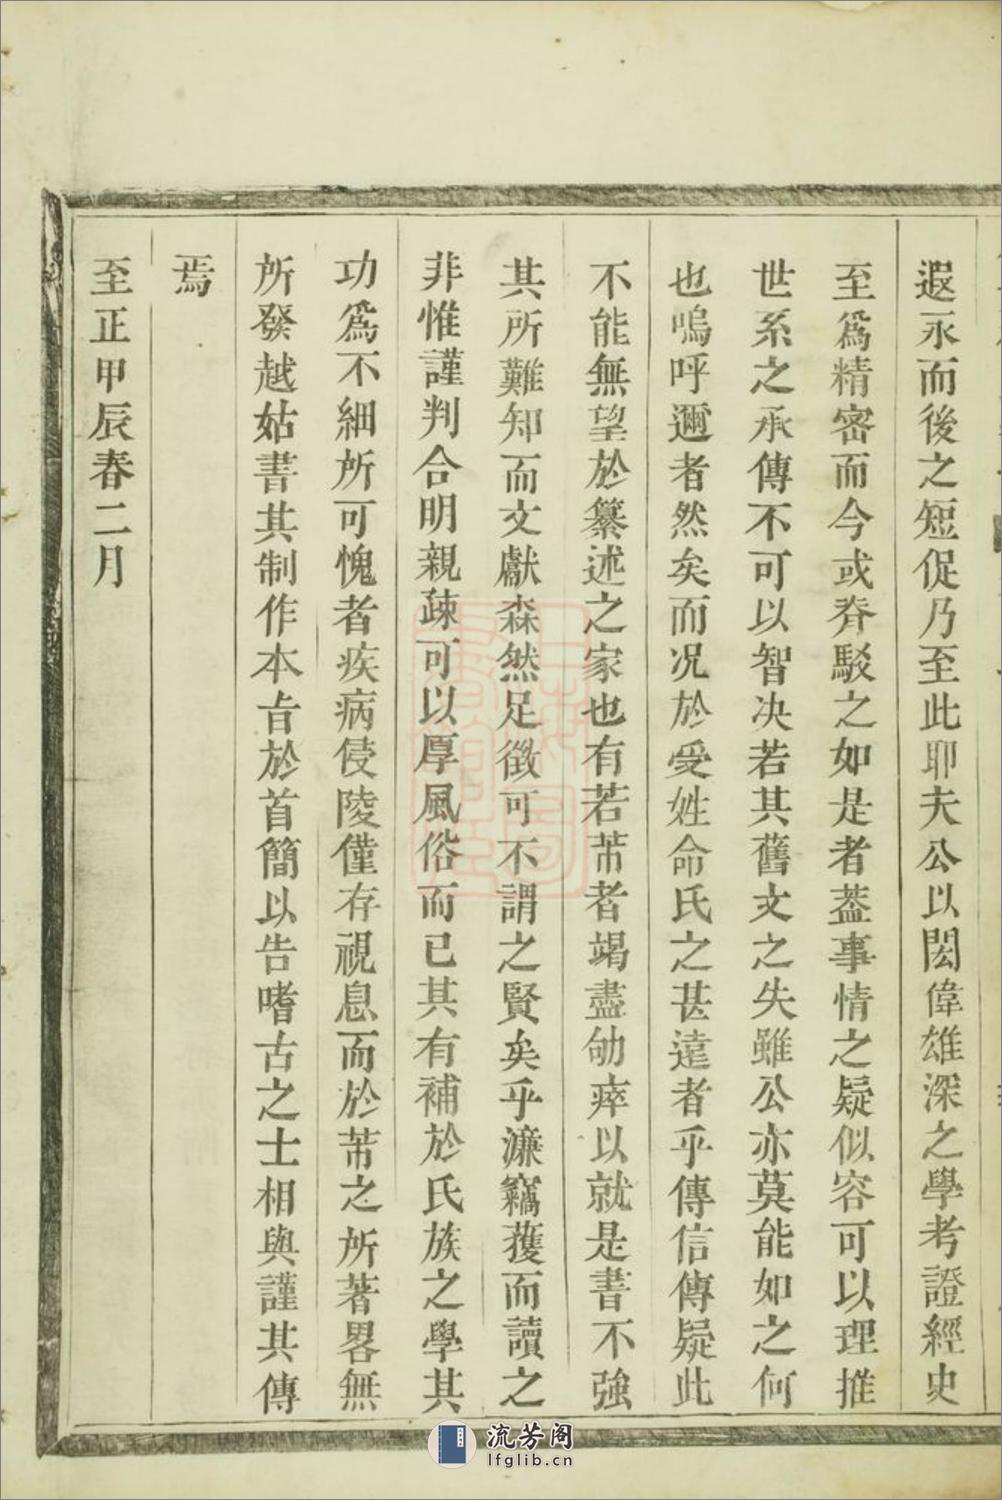 遐永而後之短促乃至此耶夫公以閎偉雄深之學考證經史
至爲精密而今或脊駁之如是者蓋事情之疑似容可以理推
世系之承傳不可以智决若其舊文之失雖公亦莫能如之何
也嗚呼邇者然矣而况於受姓命氏之甚遠者乎傳信傳疑此
不能無望於纂述之家也有若芾者竭盡劬瘁以就是書不強
其所難知而文獻森然足徵可不謂之賢矣乎濂竊蒦而讀之
非惟謹判合明親疎可以厚風俗而已其有補於氏族之學其
功爲不細所可愧者疾病侵陵僅存視息而於芾之所著畧無
所發越姑書其制作本旨於首簡以告嗜古之士相與謹其傳
焉
至正甲辰春二月
流芳阁
lfglib.cn